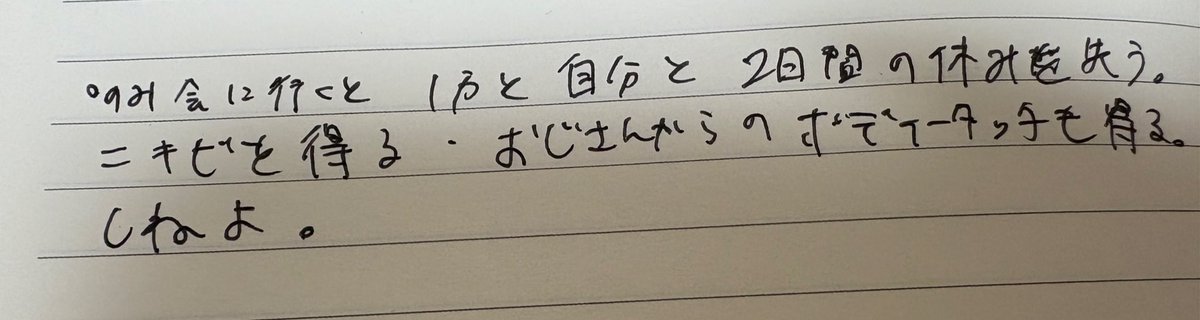 °のみ会に行くと 1万と自分と 2日間の休みを失う。
＝キビを得る・おじさんからのボディータッチを得る。
しねよ。